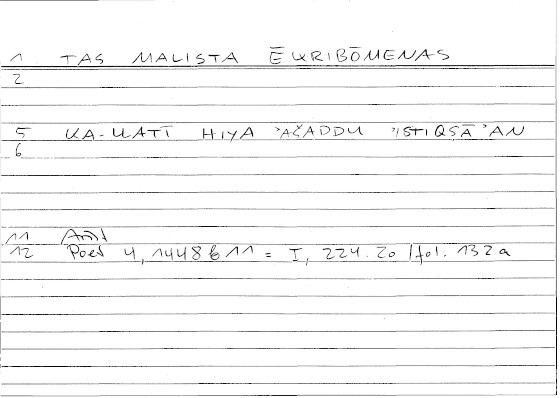 1 TAS MALISTA ĒKRIBŌMENAS
2
5 KA-LLATĪ HIYA ʾAŠADDU ʾISTIQṢĀʾAN
6
11 Arist
12 Poet 4, 1448 b 11 = I, 224.20 / fol. 132a